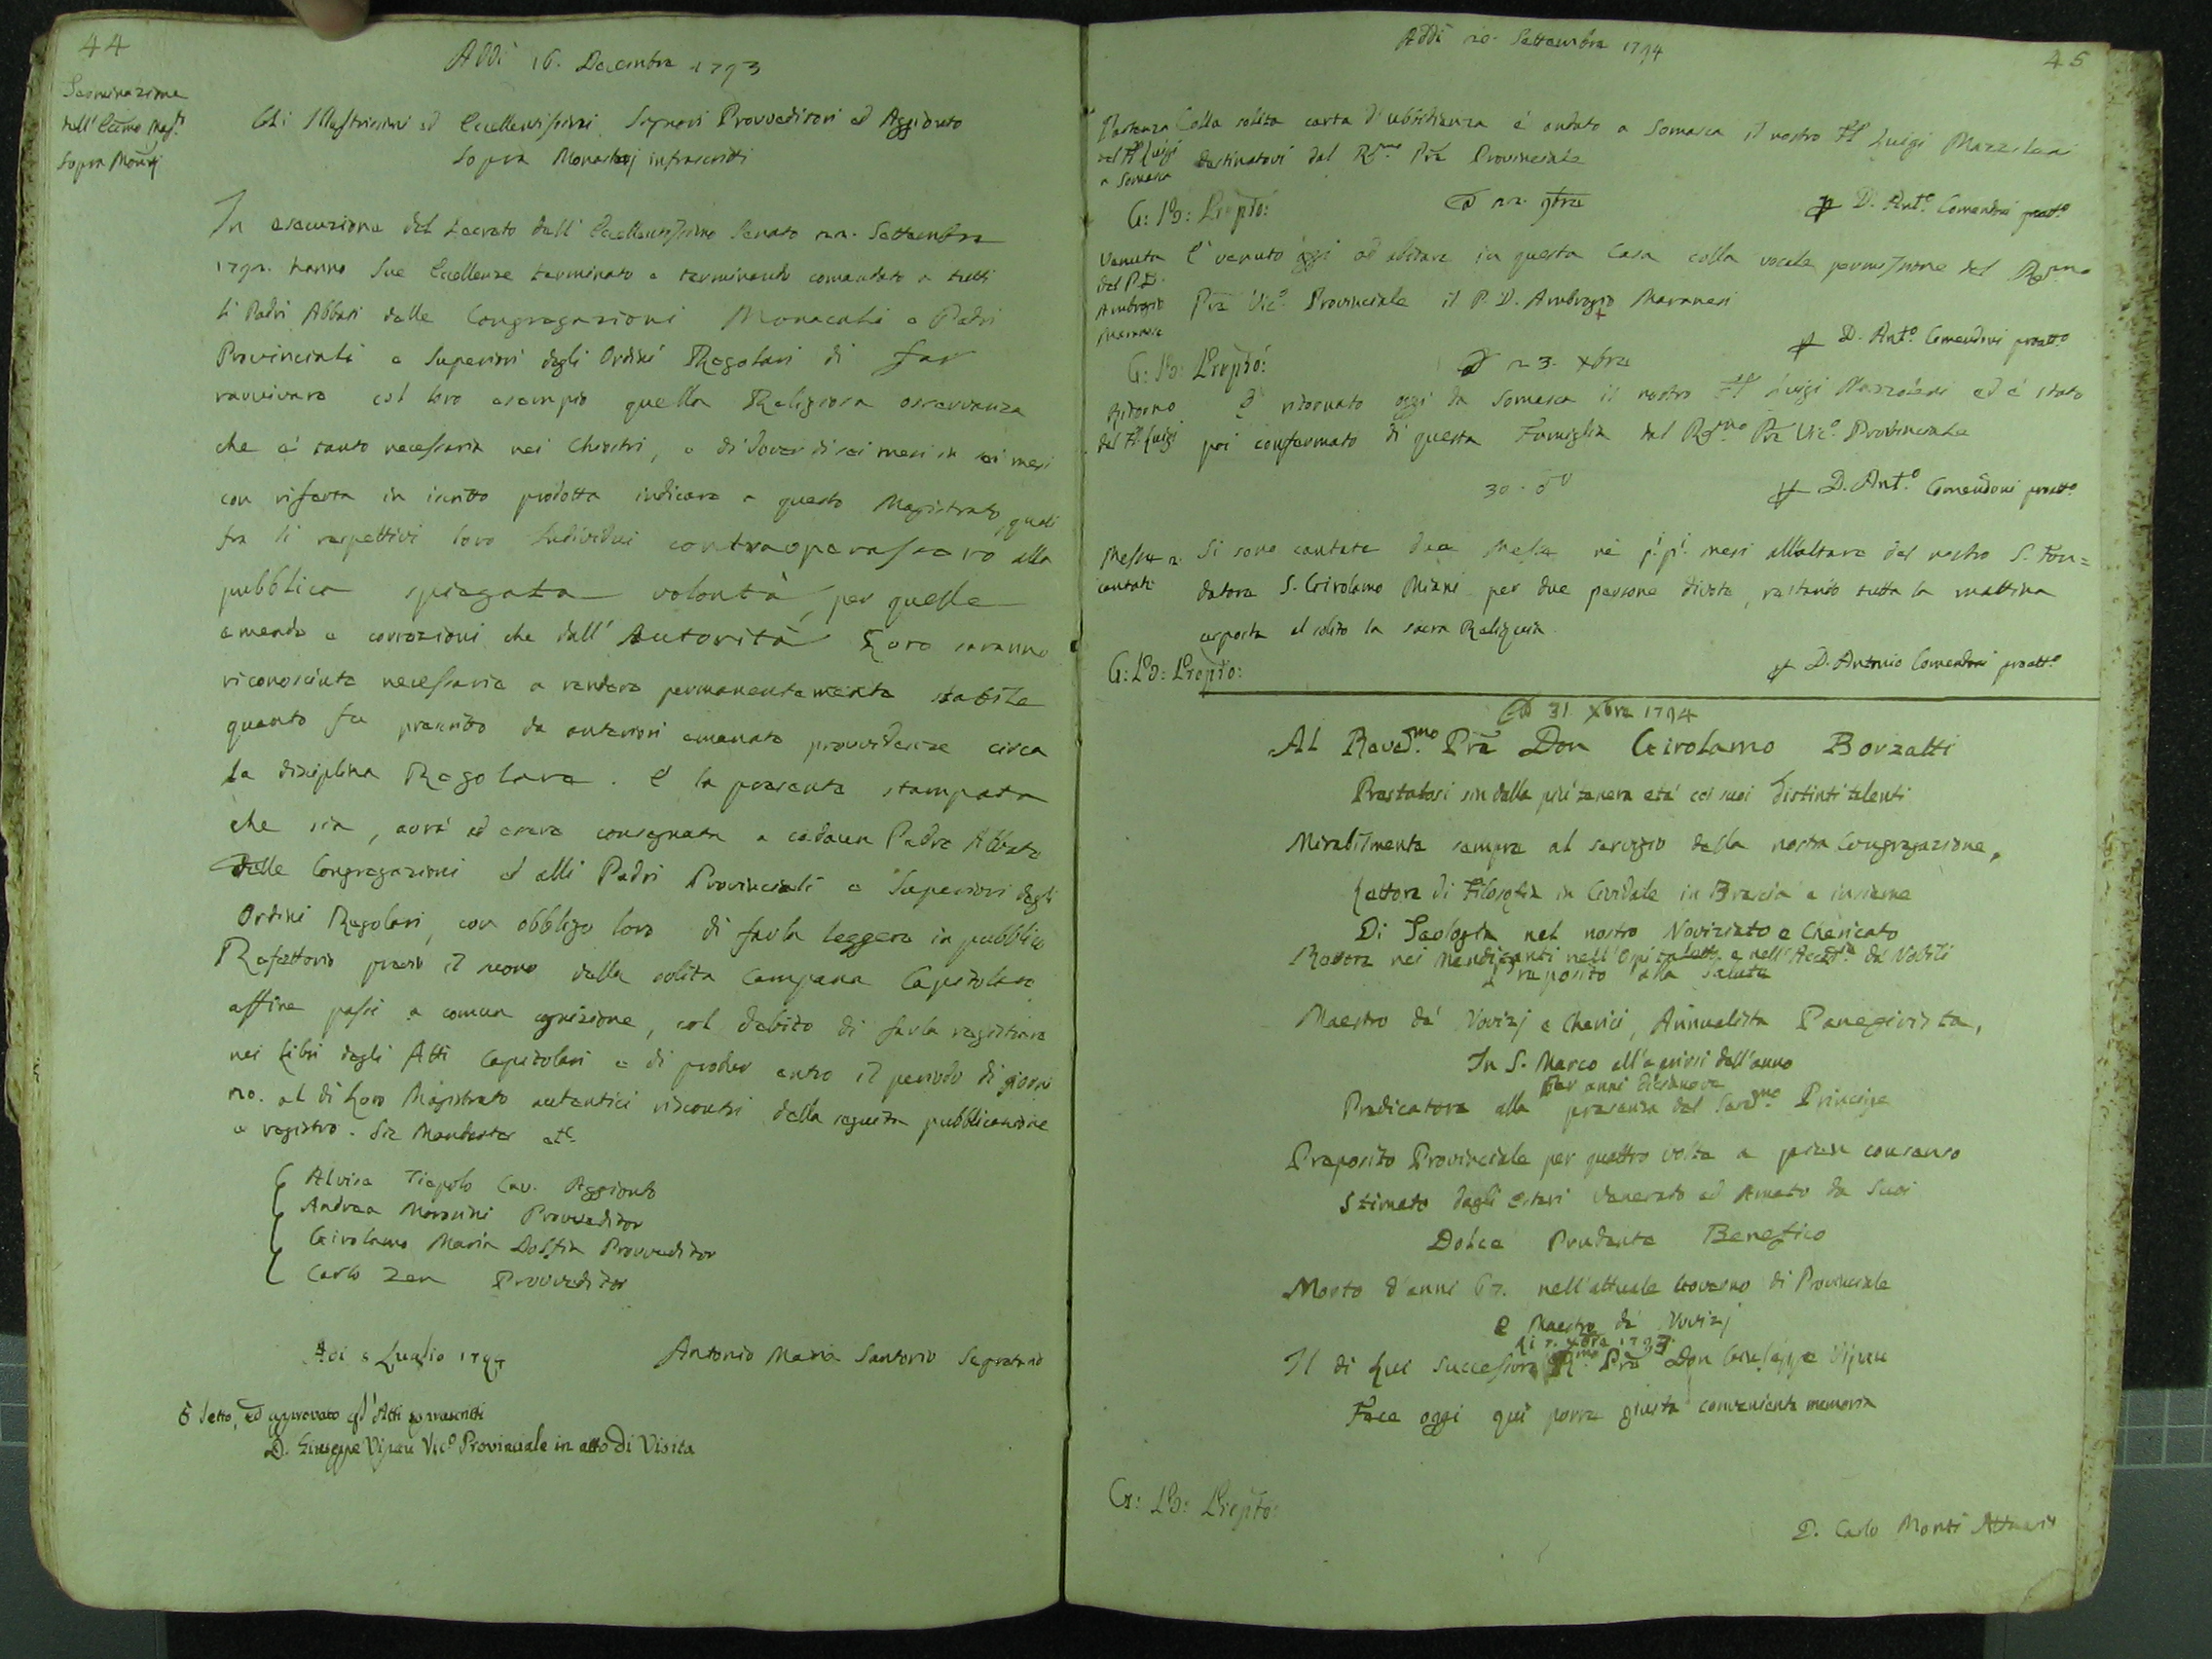 44
Addi 16. Decembre 1793
Terminazione
dell' Eccmo Magto
sopra Monrj
Gli Illustrissimi ed Eccellentissimi Signori Provveditori ed Aggionto
sopra Monasterj infrascritti
In esecuzione del Decreto dell' Eccellentissimo Senato 22. Settembre
1792. hanno Sue Eccellenze terminato e terminando comandato a tutti
li Padri Abbati delle Congregazioni Monacali e Padri
Provinciali e Superiori degli Ordini Regolari di far
ravvivare col loro esempio quella Religiosa osservanza
che è tanto necessaria nei Chiostri, e di dover di sei mesi in sei mesi
con riferta in iscritto prodotta indicare a questo Magistrato, quali
fra li respettivi loro Individui contraoperassero alla
pubblica spiegata volontà, per quelle
emende e correzioni che dall' Autorità Loro saranno
riconosciute necessarie a rendere permanentemente stabile
quanto fu prescritto da anteriori emanate provvidenze circa
la disciplina Regolare. E la presente stampata
che sia, avrà ad essere consegnata a cadaun Padre Abbate
delle Congregazioni ed alli Padri Provinciali e Superiori degli
Ordini Regolari, con obbligo loro di farla leggere in pubblico
Refettorio previo il suono della solita Campana Capitolare
affine passi a comun cognizione, col debito di farla registrare
nei Libri degli Atti Capitolari e di produr entro il periodo di giorni
20. al di Loro Magistrato autentici riscontri della seguita pubblicazione
e registro. Sic Mandantes etc.
Alvise Tiepolo Cav. Aggionto
Andrea Morosini Provveditor
Girolamo Maria Dolfin Provveditor
Carlo Zen Provveditor
Adi 5 Luglio 1794
Antonio Maria Santorio Segretario
Letto, ed approvato gl' Atti soprascritti
D. Giuseppe Vipau Vico Provinciale in atto di Visita
45
Addi 20. Settembre 1794
Partenza
del Fl Luigi
a Somasca
Colla solita carta d'ubbidienza è andato a Somasca il nostro Fl Luigi Mazzoleni
destinatovi dal Rmo Pre Provinciale
G: B: Prepto:
22. 9bre
D. Anto Comendoni proatto
Venuta
del P.D.
Ambrogio
Maranese
È venuto oggi ad abitare in questa Casa colla vocale permissione del Revmo
Pre Vico Provinciale il P. D. Ambrogio Maranesi
D. Anto Comendoni proatto
G: B: Prepto:
23. Xbre
Ritorno
del Fl Luigi
È ritornato oggi da Somasca il nostro Fl Luigi Mazzoleni ed è stato
poi confermato di questa Famiglia dal Rmo Pre Vico Provinciale
30. do
D. Anto Comendoni proatto
Messe 2
cantate
Si sono cantate due Messe ne' p.p. mesi all'altare del nostro S. Fon=
datore S. Girolamo Miani per due persone divote, restando tutta la mattina
esposta al solito la sacra Reliquia
G: B: Prepto:
D. Antonio Comendoni proatto
31 Xbre 1794
Al Revdmo Pre Don Girolamo Borzatti
Prestatosi sin dalla più tenera età coi suoi distinti talenti
Mirabilmente sempre al servigio della nostra Congregazione,
Lettore di Filosofia in Cividale in Brescia e insieme
Di Teologia nel nostro Noviziato e Chericato
Rettore nei Mendicanti nell'Opitaletto e nell'Accadia de' Nobili
Preposito alla Salute
Maestro de' Novizj e Cherici, Annualista Panegirista,
In S. Marco all'aprirsi dell'anno
per anni diecinove
Predicatore alla presenza del Sermo Principe
Preposito Provinciale per quattro volte a pieno consenso
Stimato dagli Esteri Venerato ed Amato da Suoi
Dolce Prudente Benefico
Morto d'anni 67. nell'attuale Governo di Provinciale
e Maestro de' Novizj
li 7. Xbre 1793.
Il di Lui Successore Rmo Pre Don Giuseppe Vipau
Fece oggi qui porre giusta conveniente memoria
G: B: Prepto:
D. Carlo Monti Attuario